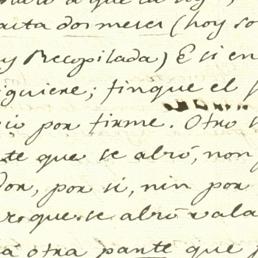 a que la
dos meses (hoy so
y Recopilada) E si en
siguiere; finque el p
por firme. Otro s
te que se abrió, non p
dor, por si, nin por
roque se abrió vala
á otra pante que p